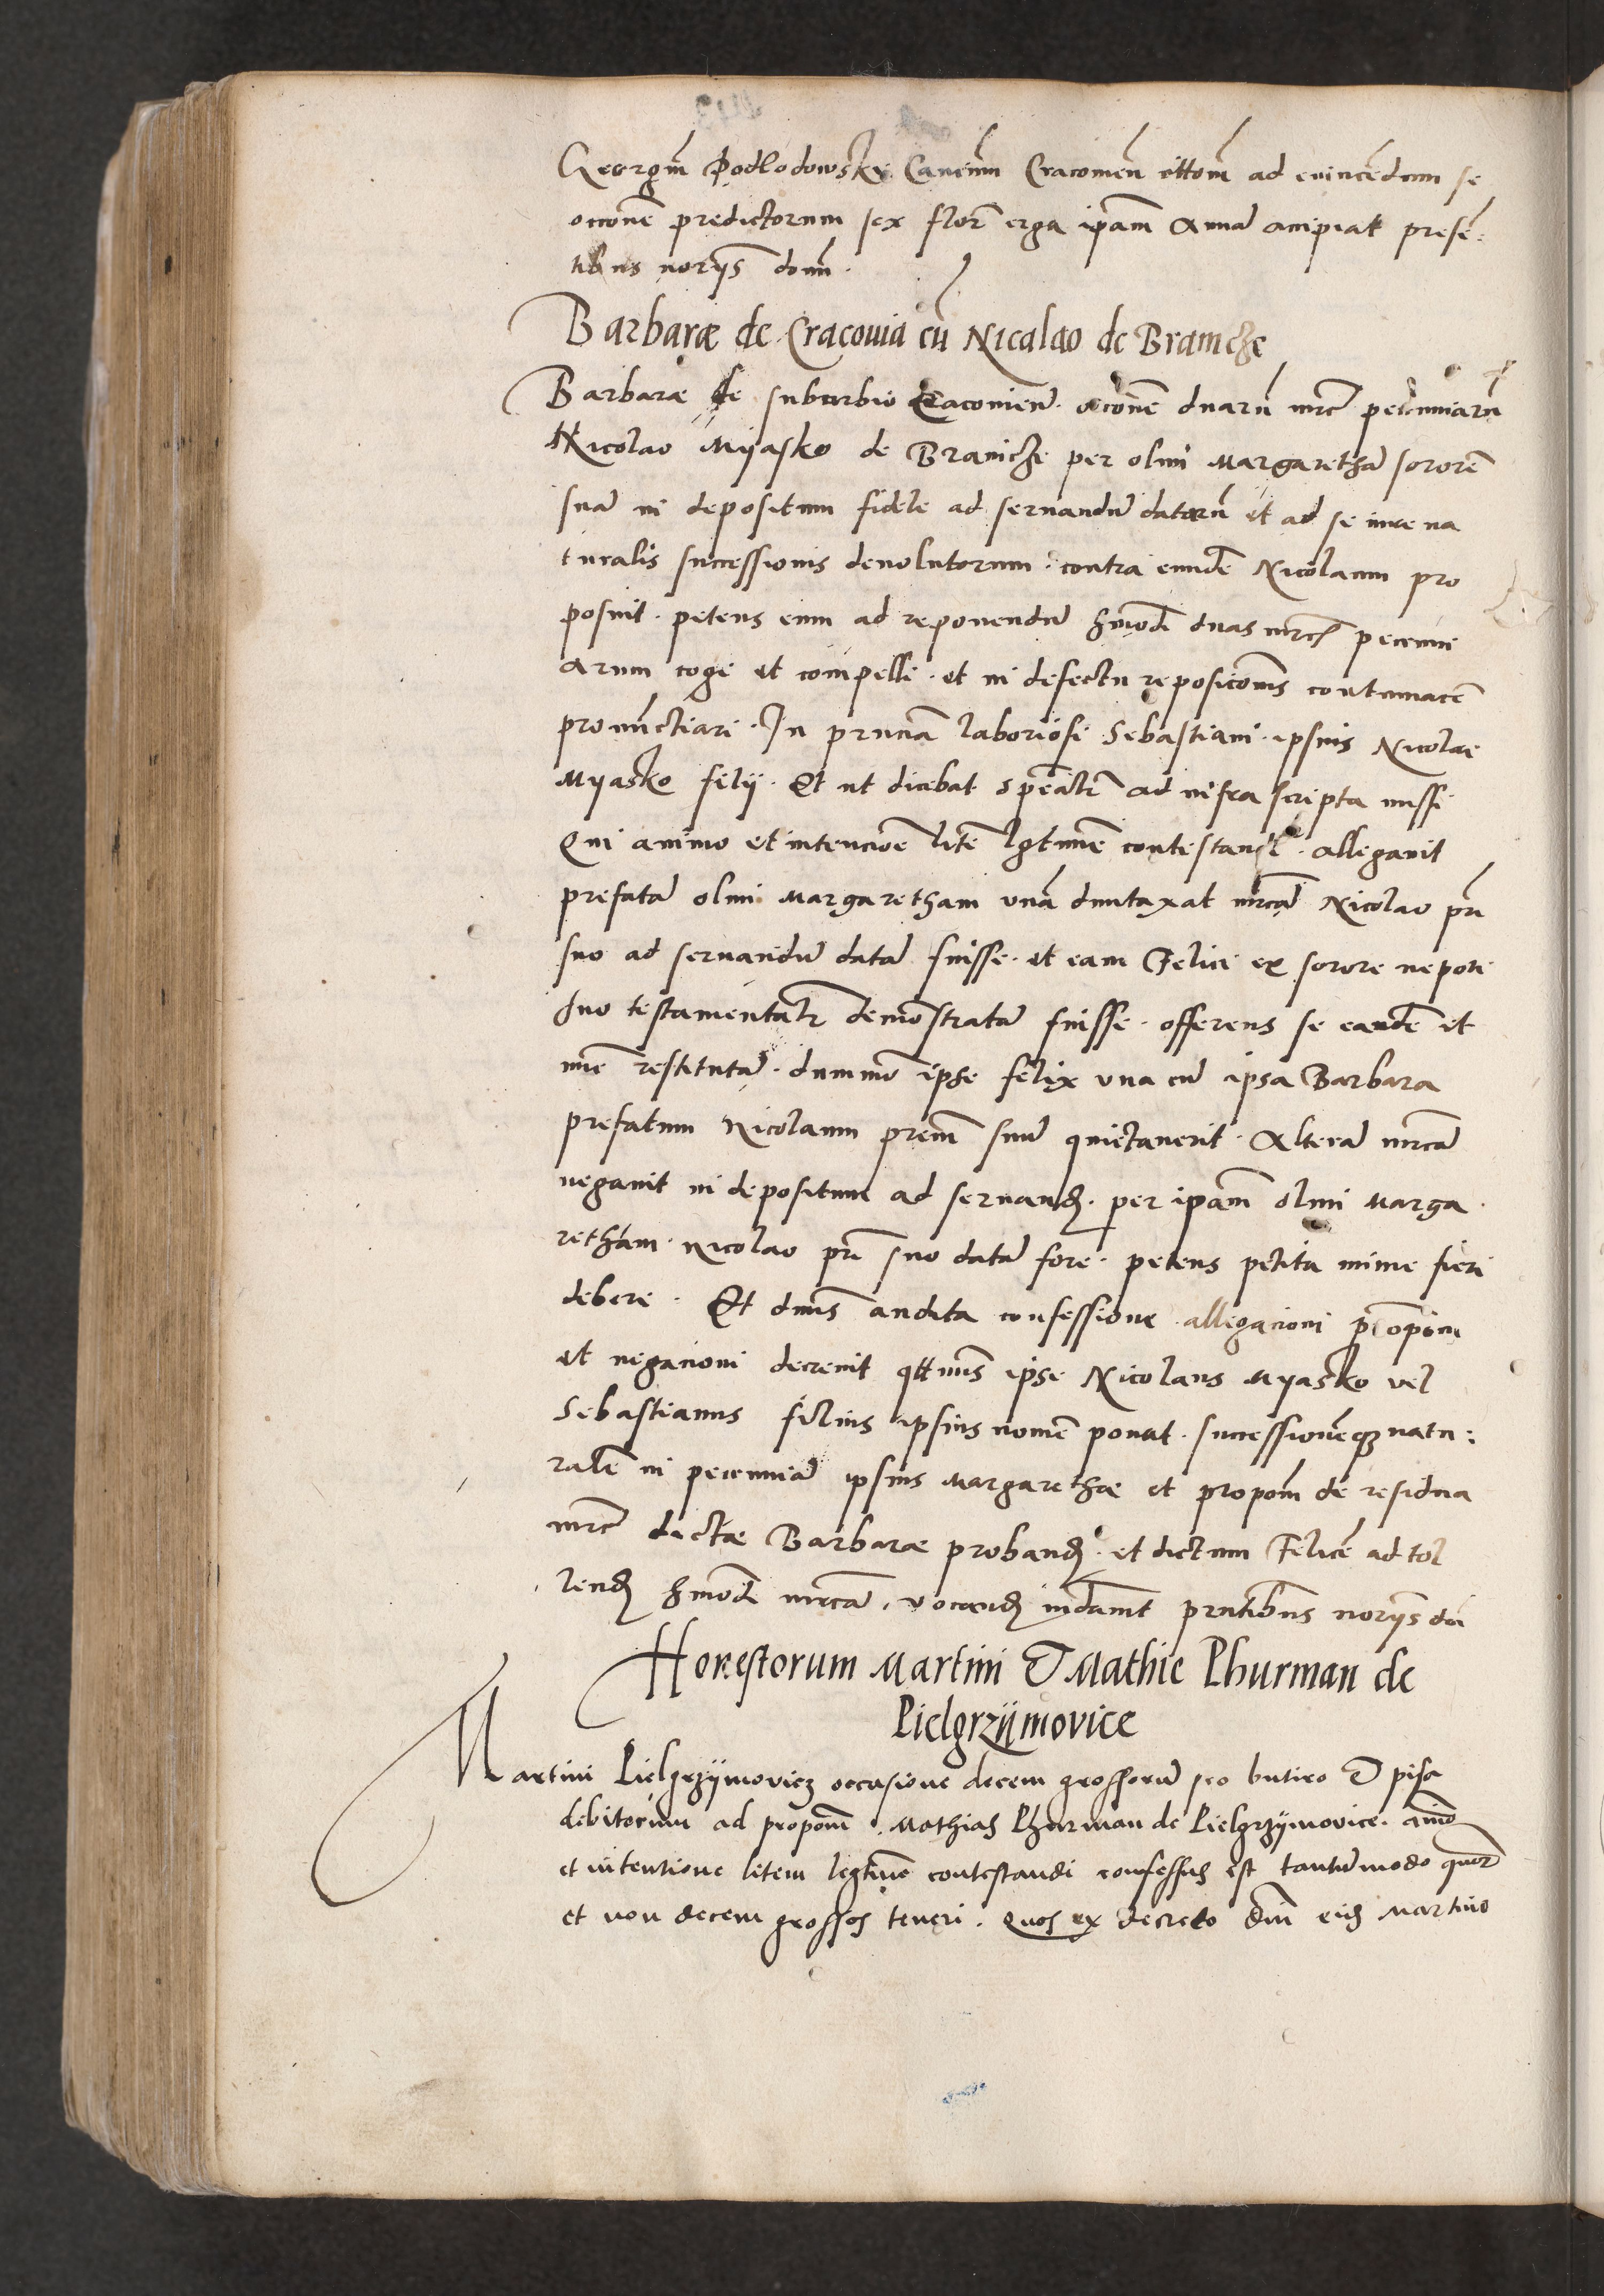 Georgiu̅ Podlodowsky Canonicu̅ Cracouien̅ ac̅tore̅ ad euincendum se
occone̅ predictorum sex flor̅ erga ip̅am Anna̅ accipiat prese̅:
tibus noryis domi̅.
Barbaræ de Cracouia cu̅ Nicalao de Branicze
Barbaræ de suburbio Cracouien̅. occone̅ duaru̅ mrc̅ pecuniaru̅
Nicolao Myasko de Branicze per olim Margaretha̅ sorore̅
sua̅ in depositum fidele ad seruandu̅ datoru̅ et ad se iure na
turalis successionis deuolutorum. contra eunde̅ Nicolaum pro
posuit. petens eum ad reponendu̅ hmo̅di duas mrcs̅ pecuni
arum cogi et compelli. et in defectu reposicionis contumace̅
pronunctiari. In pr̅ncia̅ laboriosi Sebastiani ipsius Nicolai
Myasko filij. Et ut dicebat specialr̅ ad infra scripta missi
Qui animo et intencioe̅ lite̅ lgt̅ime̅ contestandi. allegauit
prefata̅ olim Margaretham vna̅ dumtaxat mrca̅ Nicolao pr̅i
suo ad seruandu̅ data̅ fuisse. et eam Felici ex sorore nepoti
suo testamentalr̅ demonstrata̅ fuisse. offerens se eande̅ et
restituta̅. dummo̅ ipse felix vna cu̅ ipsa Barbara
prefatum Nicolaum pr̅em suu̅ quietauerit. Altera̅ mrca̅
negauit in depositum ad seruand̅. per ip̅am olim Marga
retham. Nicolao pr̅i suo data̅ fore. petens petita mi̅me fieri
debere. Et dn̅us audita confessione allegacioni
et negacioni decreuit q̅tenus ipse Nicolaus Myasko vel
Sebastianus filius ipsius nomi̅e ponat. successione̅q; natu:
rale̅ in pecunia̅ ipsius Margarethæ et propom̅ de residua
mrc̅ dictæ Barbaræ proband̅. et dictum Felice̅ ad tol
lend̅ hmo̅di mrca̅. vocand̅ pr̅ntibus noryis do̅
Honestorum Martini & Mathie Phurman de
Pielgrzijmovice
Martini Pielgrzijmovicz occasione decem grossoru̅ pro butiro & pisa
debitorum ad propom̅. Mathias Phurman de Pielgrzijmovice. ai̅mo
et intentione litem legti̅me contestandi confessus est tantu̅modo quor̅
et non decem grossos teneri. Quos ex decreto dn̅i eid̅ Martino